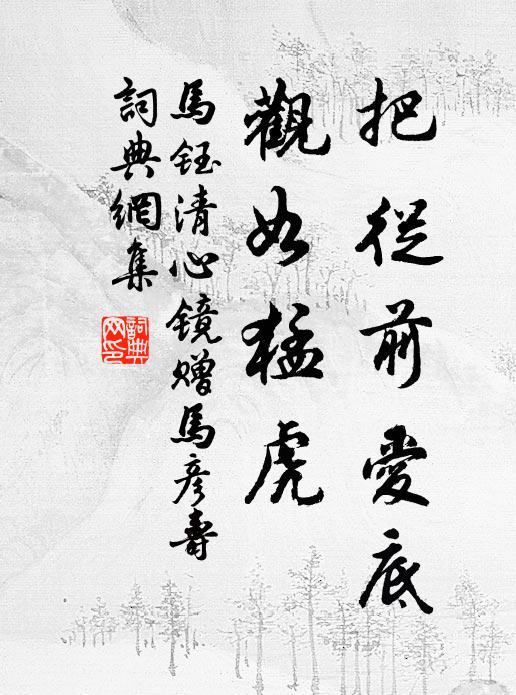 把從前愛底
觀如猛虎
馬鈺清心镜贈馬彥壽
詞典網集
詞典网印